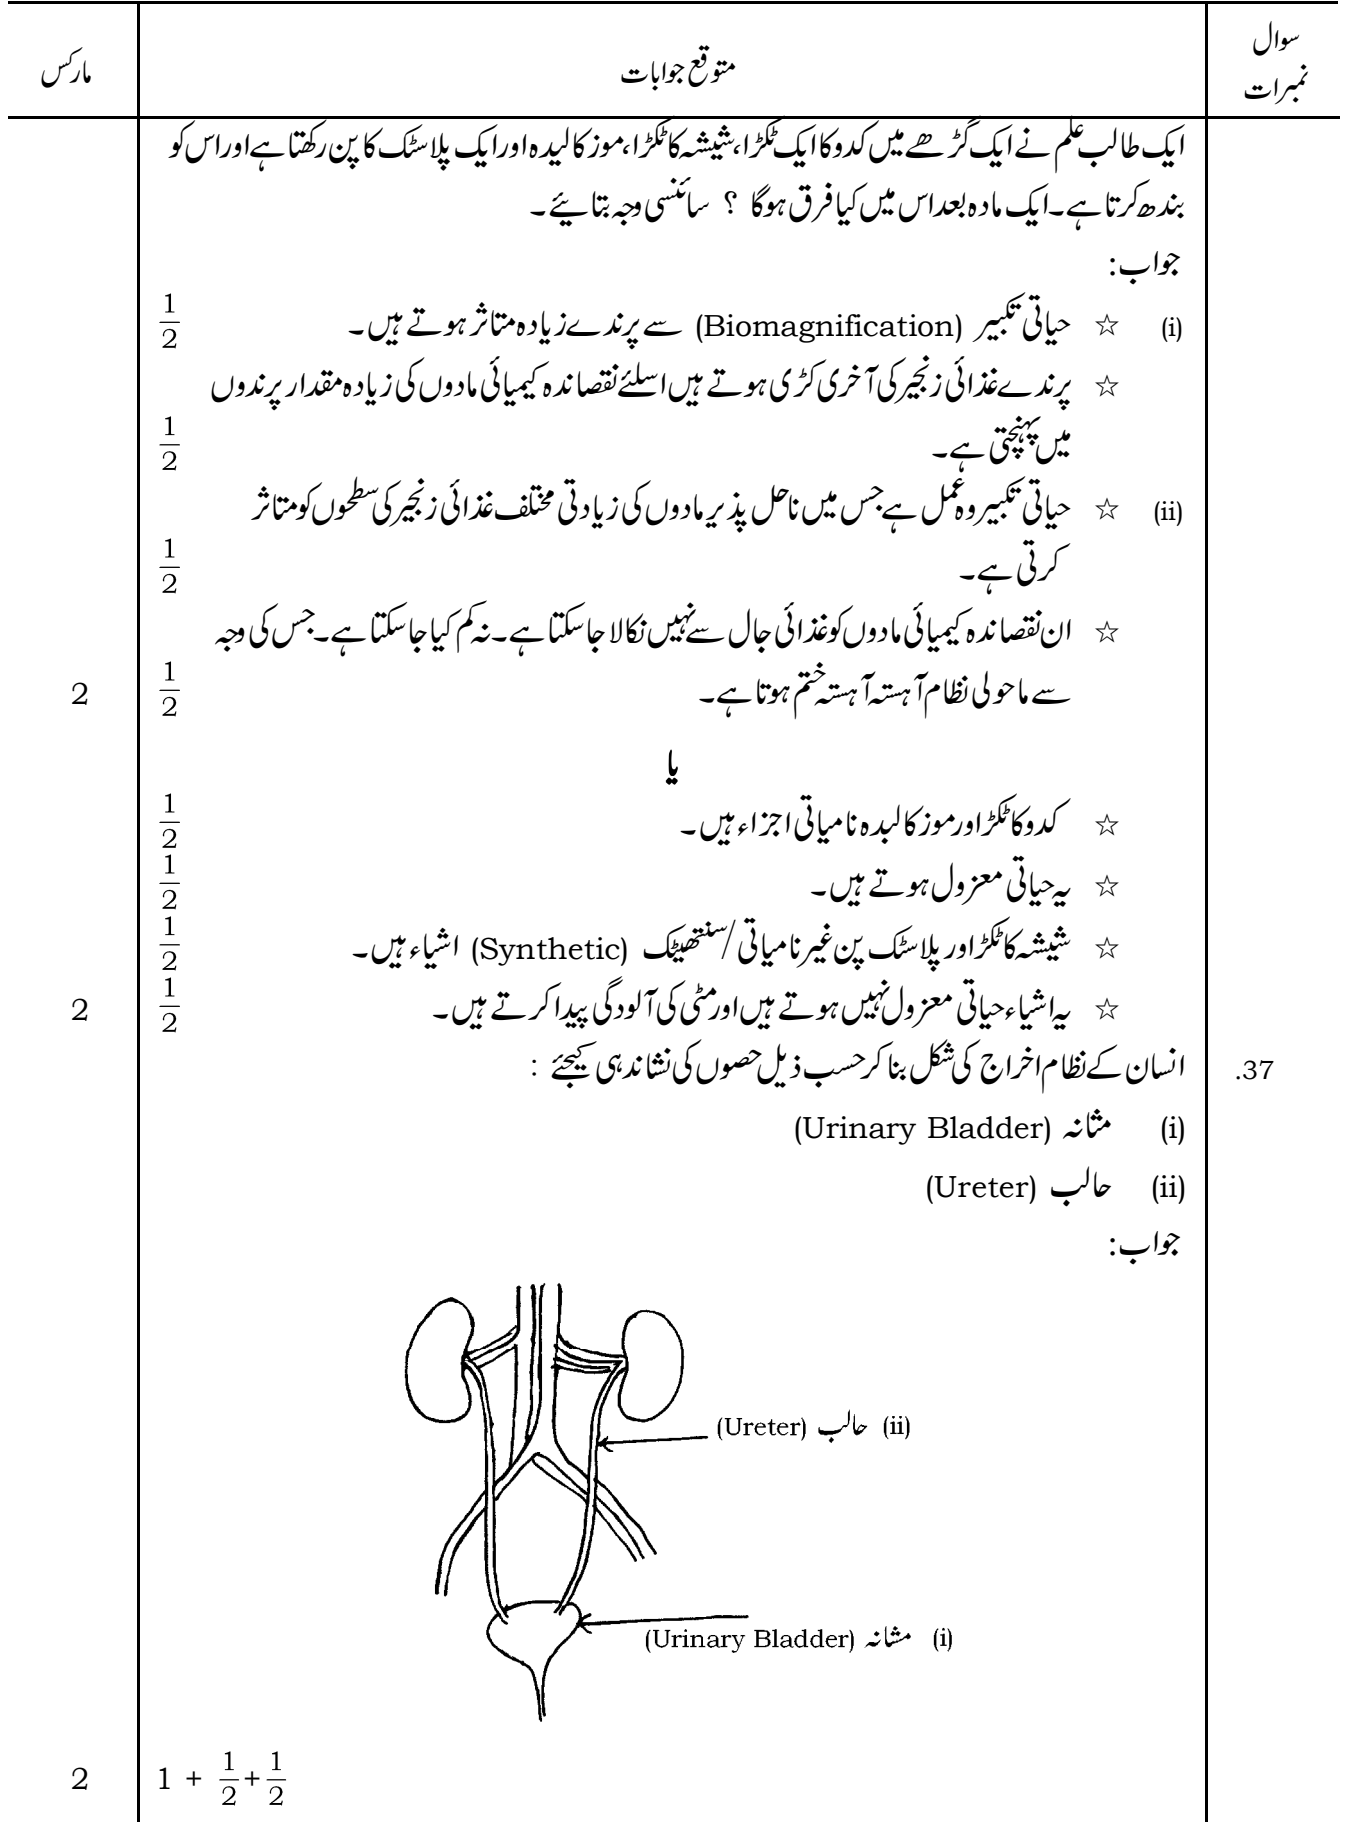 سوال نمبرات
متوقع جوابات
مارکس
ایک طالب علم نے ایک گڑھے میں کدو کا ایک ٹکڑا، شیشہ کا ٹکڑا، موز کا لیدہ اور ایک پلاسٹک کا پن رکھتا ہے اور اس کو
بندھ کرتا ہے۔ ایک مادہ بعد اس میں کیا فرق ہوگا ؟ سائنسی وجہ بتائیے۔
جواب:
(i) ☆ حیاتی تکبیر (Biomagnification) سے پرندے زیادہ متاثر ہوتے ہیں۔ 1/2
☆ پرندے غذائی زنجیر کی آخری کڑی ہوتے ہیں اسلئے نقصاندہ کیمیائی مادوں کی زیادہ مقدار پرندوں
میں پہنچتی ہے۔ 1/2
(ii) ☆ حیاتی تکبیر وہ عمل ہے جس میں ناحل پذیر مادوں کی زیادتی مختلف غذائی زنجیر کی سطحوں کو متاثر
کرتی ہے۔ 1/2
☆ ان نقصاندہ کیمیائی مادوں کو غذائی جال سے نہیں نکالا جاسکتا ہے۔ نہ کم کیا جاسکتا ہے۔ جس کی وجہ
سے ماحولی نظام آہستہ آہستہ ختم ہوتا ہے۔ 1/2 2
یا
☆ کدو کا ٹکڑا اور موز کا لبدہ نامیاتی اجزاء ہیں۔ 1/2
☆ یہ حیاتی معزول ہوتے ہیں۔ 1/2
☆ شیشہ کا ٹکڑا اور پلاسٹک پن غیر نامیاتی/سنتھیٹک (Synthetic) اشیاء ہیں۔ 1/2
☆ یہ اشیاء حیاتی معزول نہیں ہوتے ہیں اور مٹی کی آلودگی پیدا کرتے ہیں۔ 1/2 2
37. انسان کے نظام اخراج کی شکل بنا کر حسب ذیل حصوں کی نشاندہی کیجئے :
(i) مثانہ (Urinary Bladder)
(ii) حالب (Ureter)
جواب:
(ii) حالب (Ureter)
(i) مشانہ (Urinary Bladder)
1 + 1/2 + 1/2 2